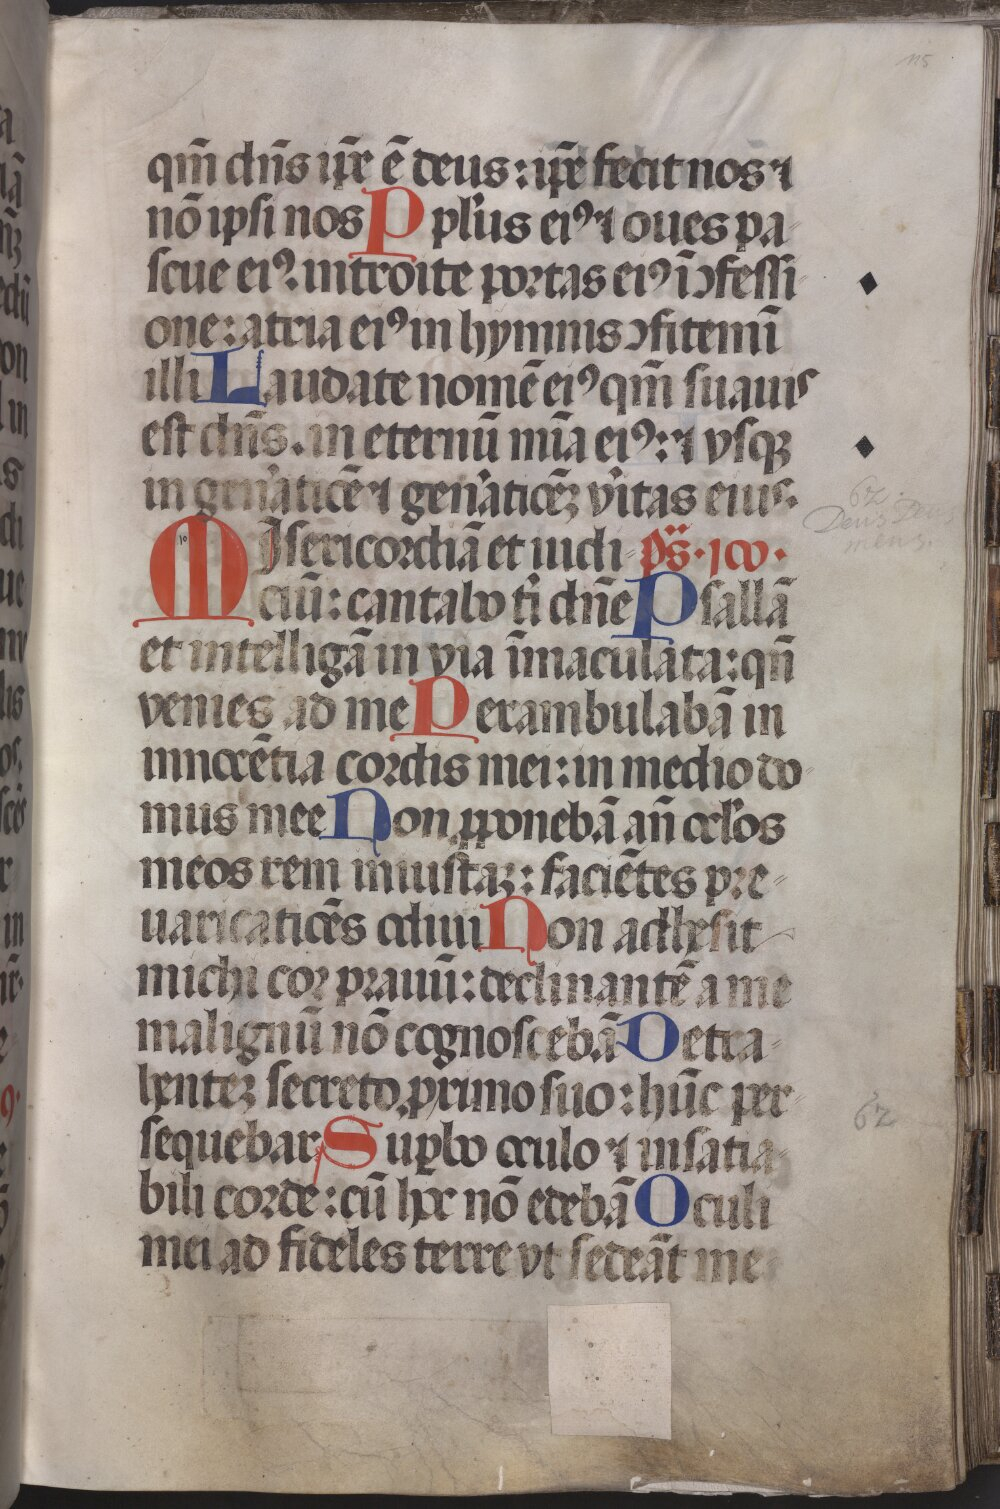 115
qm̄ dn̄s ip̄e ē deus: ip̄e fecit nos ⁊
nō ipsi nos Ppl's eiꝰ ⁊ oues pa-
scue eiꝰ. introite portas eiꝰ ī ꝯfessi-
one: atria eiꝰ in hymnis ꝯfitemī
illi Laudate nomē eiꝰ qm̄ suauis
est dn̄s. in eternū mīa eiꝰ: ⁊ vsqꝫ
in gen̓aticē ⁊ gen̓aticēꝫ v̓itas eius.
Misericordiā et iudi- ps̄. 100.
ciū: cantabo ti dn̄e Psallā
et intelligā in via īmaculata: qn̄
venies ad me Perambulabā in
innocētia cordis mei: in medio do-
mus mee Non ꝓponebā an̄ ocl'os
meos rem iniustaꝫ: faciētes pre-
uaricaticēs odiui Non adhesit
michi cor prauū: declinantē a me
malignū nō cognoscebā Detra-
hentēꝫ secreto ꝓximo suo: hūc per-
sequebar Suꝑbo oculo ⁊ insatia-
bili corde: cū hoc nō edebā Oculi
mei ad fideles terre vt sedeāt me
62.
Deus Deus
meus.
62